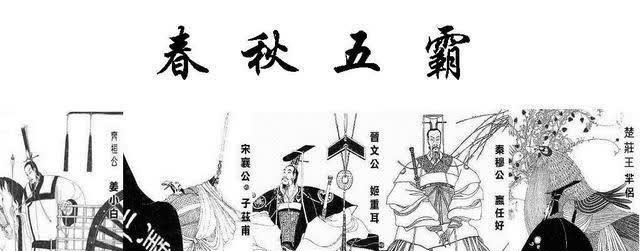 春秋五霸
齊桓公 姜小白
宋襄公 子茲甫
晉文公 姬重耳
秦穆公 嬴任好
楚莊王 芈侶